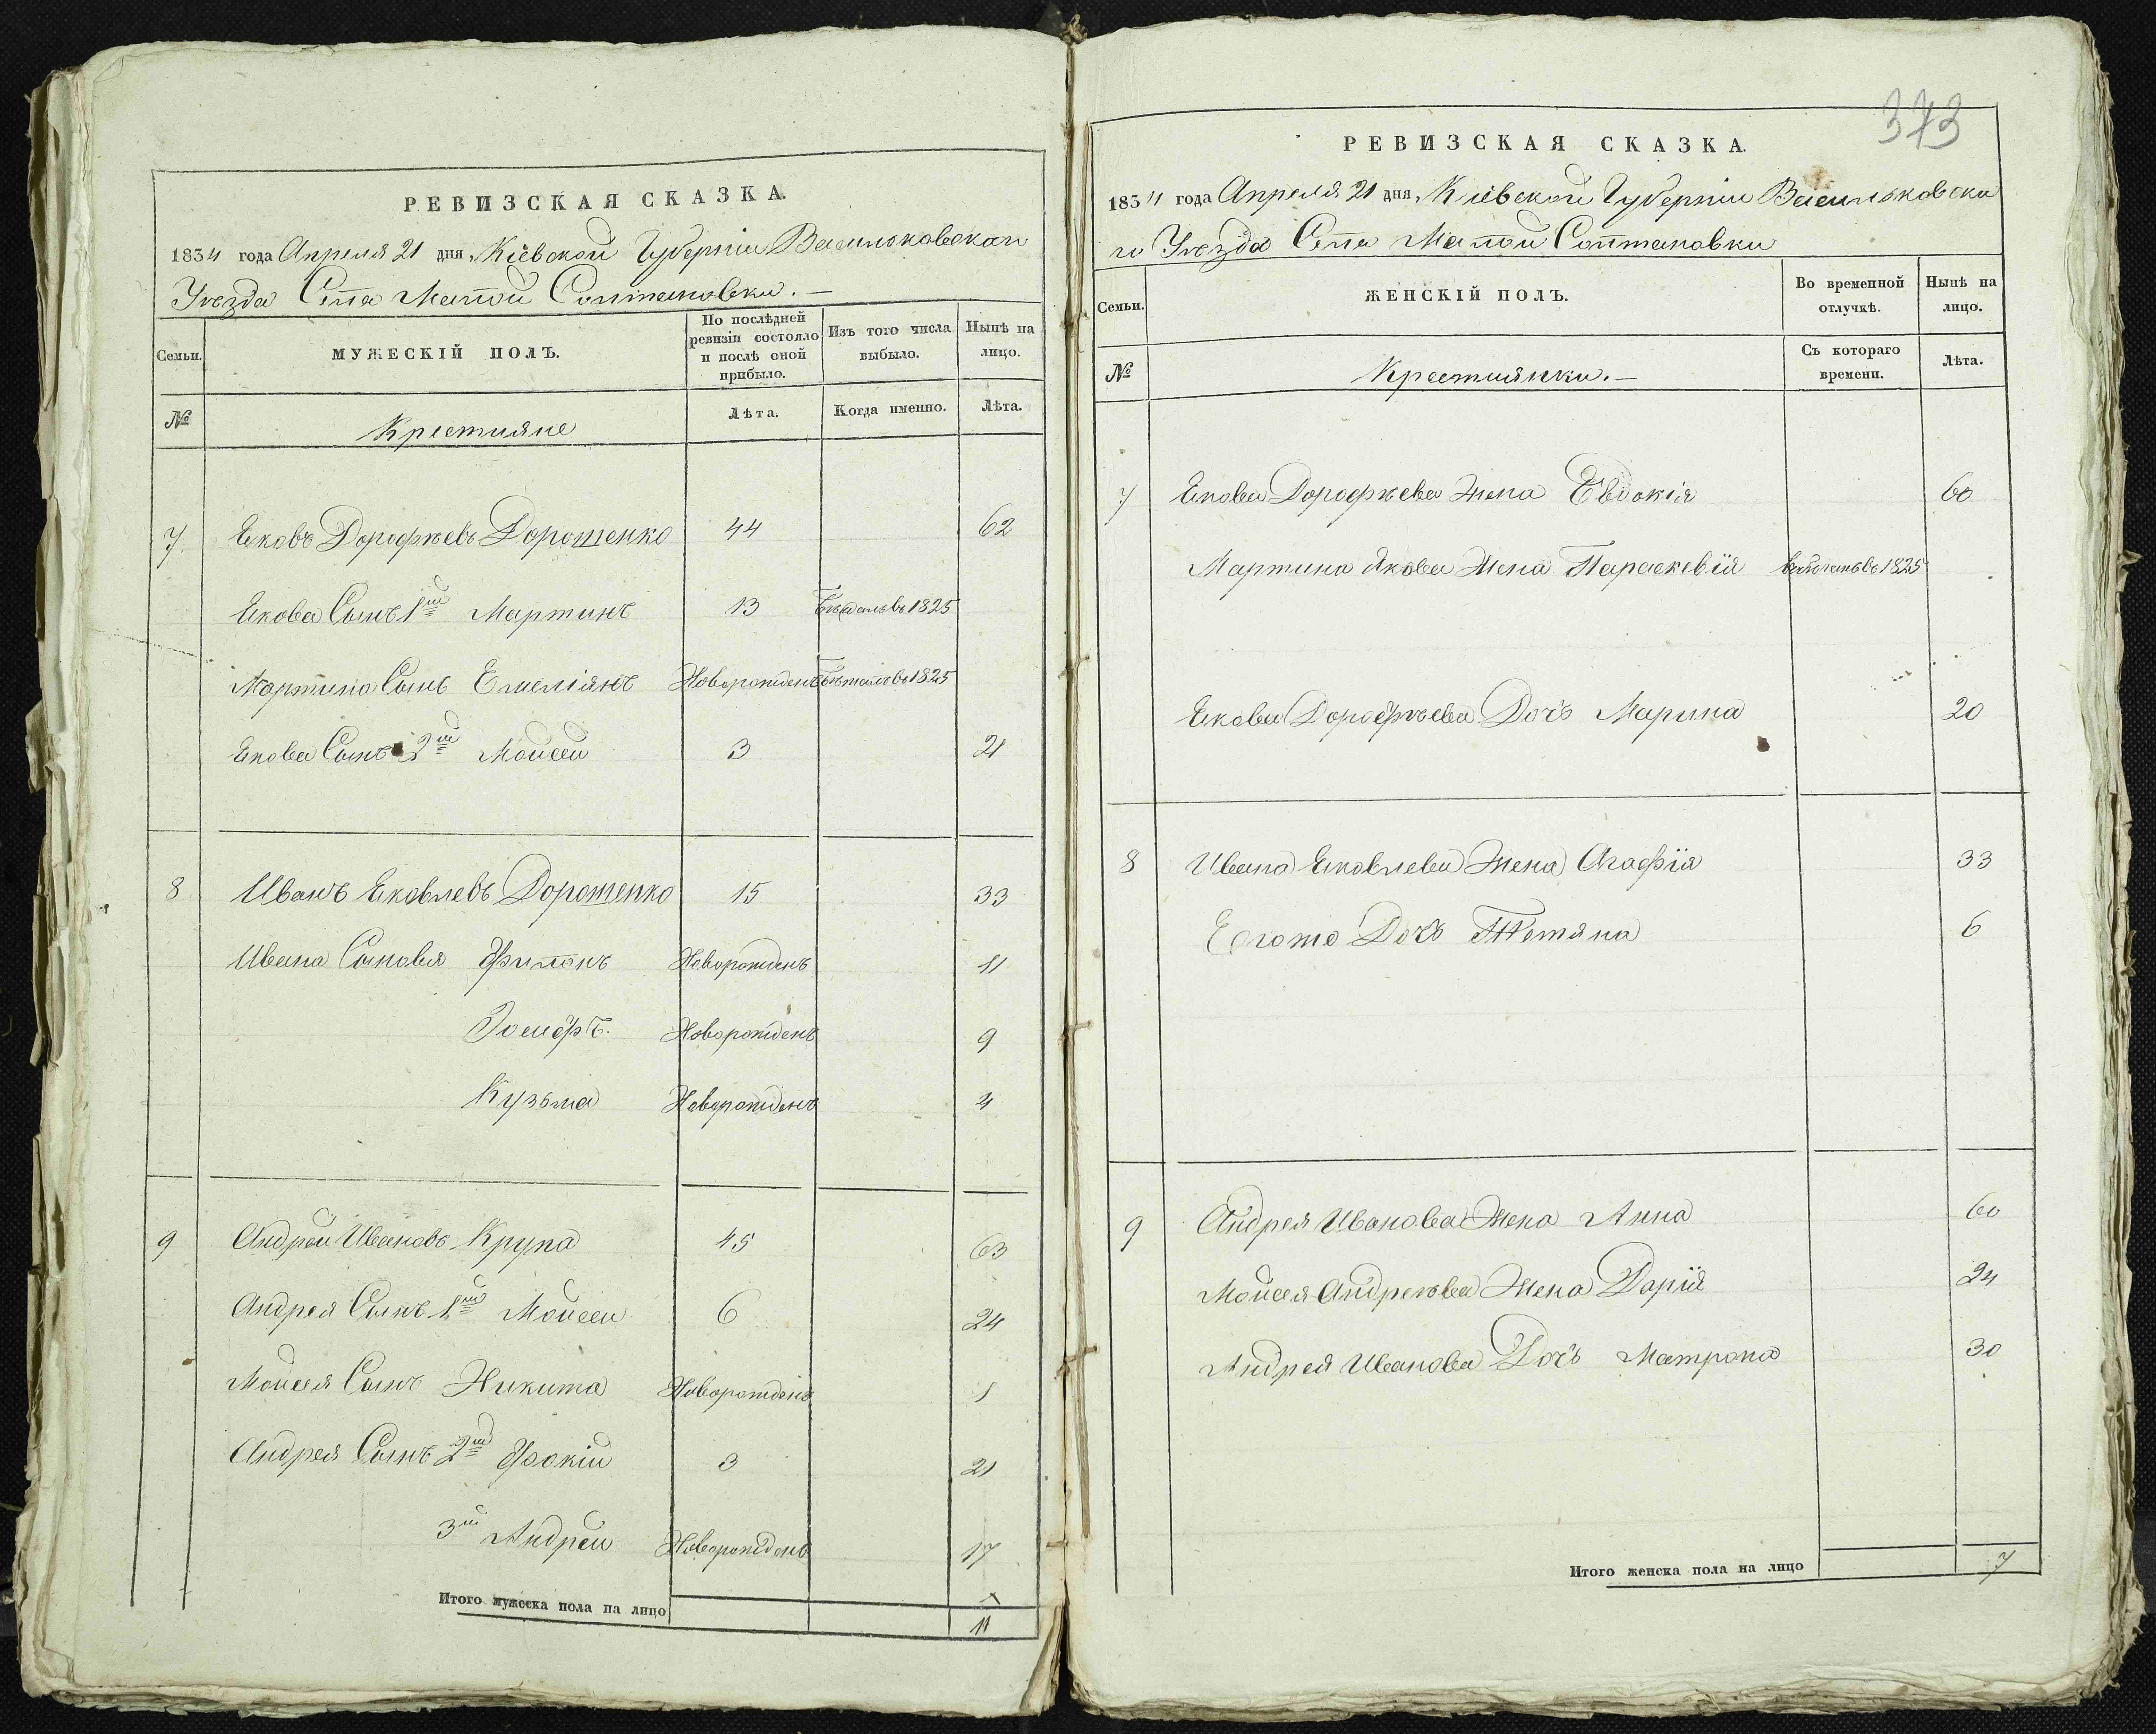 РЕВИЗСКАЯ СКАЗКА.
1834 года Апреля 21 дня, Кіевской Губерніи Васильковскаго
Уезда Села Малой Солтановки. —
Семьи.
МУЖЕСКІЙ ПОЛЪ.
По послѣдней ревизіи состояло и послѣ оной прибыло.
Изъ того числа выбыло.
Нынѣ на лицо.
№
Крестияне
Лѣта.
Когда именно.
Лѣта.
7 Яковъ Дорофѣевъ Дорошенко 44 62
Якова Сынъ 1й Мартинъ 13 1825
Мартина Сынъ Емеліянъ Новорожденъ 1825
Якова Сынъ 2й Мойсей 3 21
8 Иванъ Яковлевъ Дорошенко 15 33
Ивана Сыновья Филонъ Новорожденъ 11
Новорожденъ 9
Кузьма Новорожденъ 4
9 Андрей Ивановъ Крупа 45 63
Андрея Сынъ 1й Мойсей 6 24
Мойсея Сынъ Никита Новорожденъ 1
Андрея Сынъ 2й Фокій 3 21
3й Андрей Новорожденъ 17
Итого мужеска пола на лицо
11
373
РЕВИЗСКАЯ СКАЗКА.
1834 года Апреля 21 дня, Кіевской Губерніи Васильковска
го Уезда Села Малой Солтановки
Семьи.
ЖЕНСКІЙ ПОЛЪ.
Во временной отлучкѣ.
Нынѣ на лицо.
№
Крестиянки. —
Съ котораго времени.
Лѣта.
7 Якова Дорофѣева Жена Евдокія 60
Мартина Якова Жена Параскевія 1825
Якова Дорофѣева Дочь Марина 20
8 Ивана Яковлева Жена Агафія 33
Еогоже Дочь Тетяна 6
9 Андрея Иванова Жена Анна 60
Мойсея Андреева Жена Дарія 24
Андрея Иванова Дочь Матрона 30
Итого женска пола на лицо 7